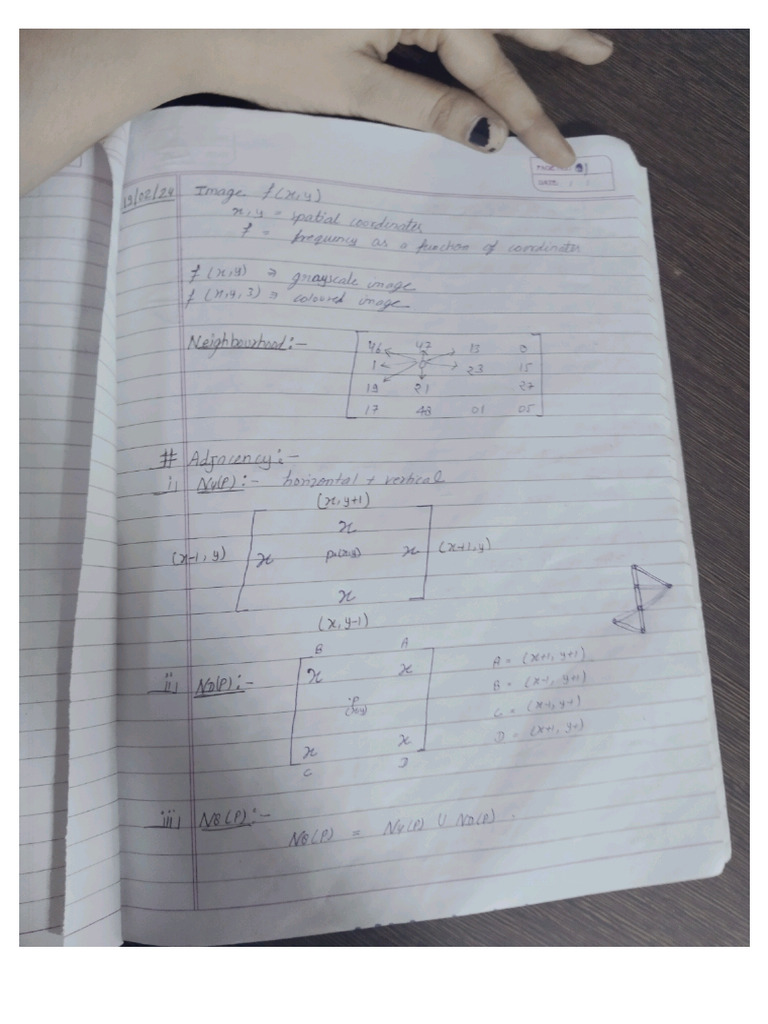 PAGE
DATE : / /
19/02/24
Image f(x,y)
x,y = spatial coordinates
f = frequency as a function of coordinates
f(x,y) ⇒ grayscale image
f(x,y,3) ⇒ coloured image
Neighbourhood:-
46 47 13 0
1 0 23 15
19 21 27
17 43 01 05
# Adjacency:-
i) N4(P):- horizontal + vertical
(x,y+1)
x
(x-1, y) x p=(x,y) x (x+1,y)
x
(x,y-1)
B A
ii) ND(P):- x x
P
(x,y)
x x
C D
A = (x+1, y+1)
B = (x-1, y+1)
C = (x-1, y-1)
D = (x+1, y-1)
iii) N8(P):-
N8(P) = N4(P) U ND(P).